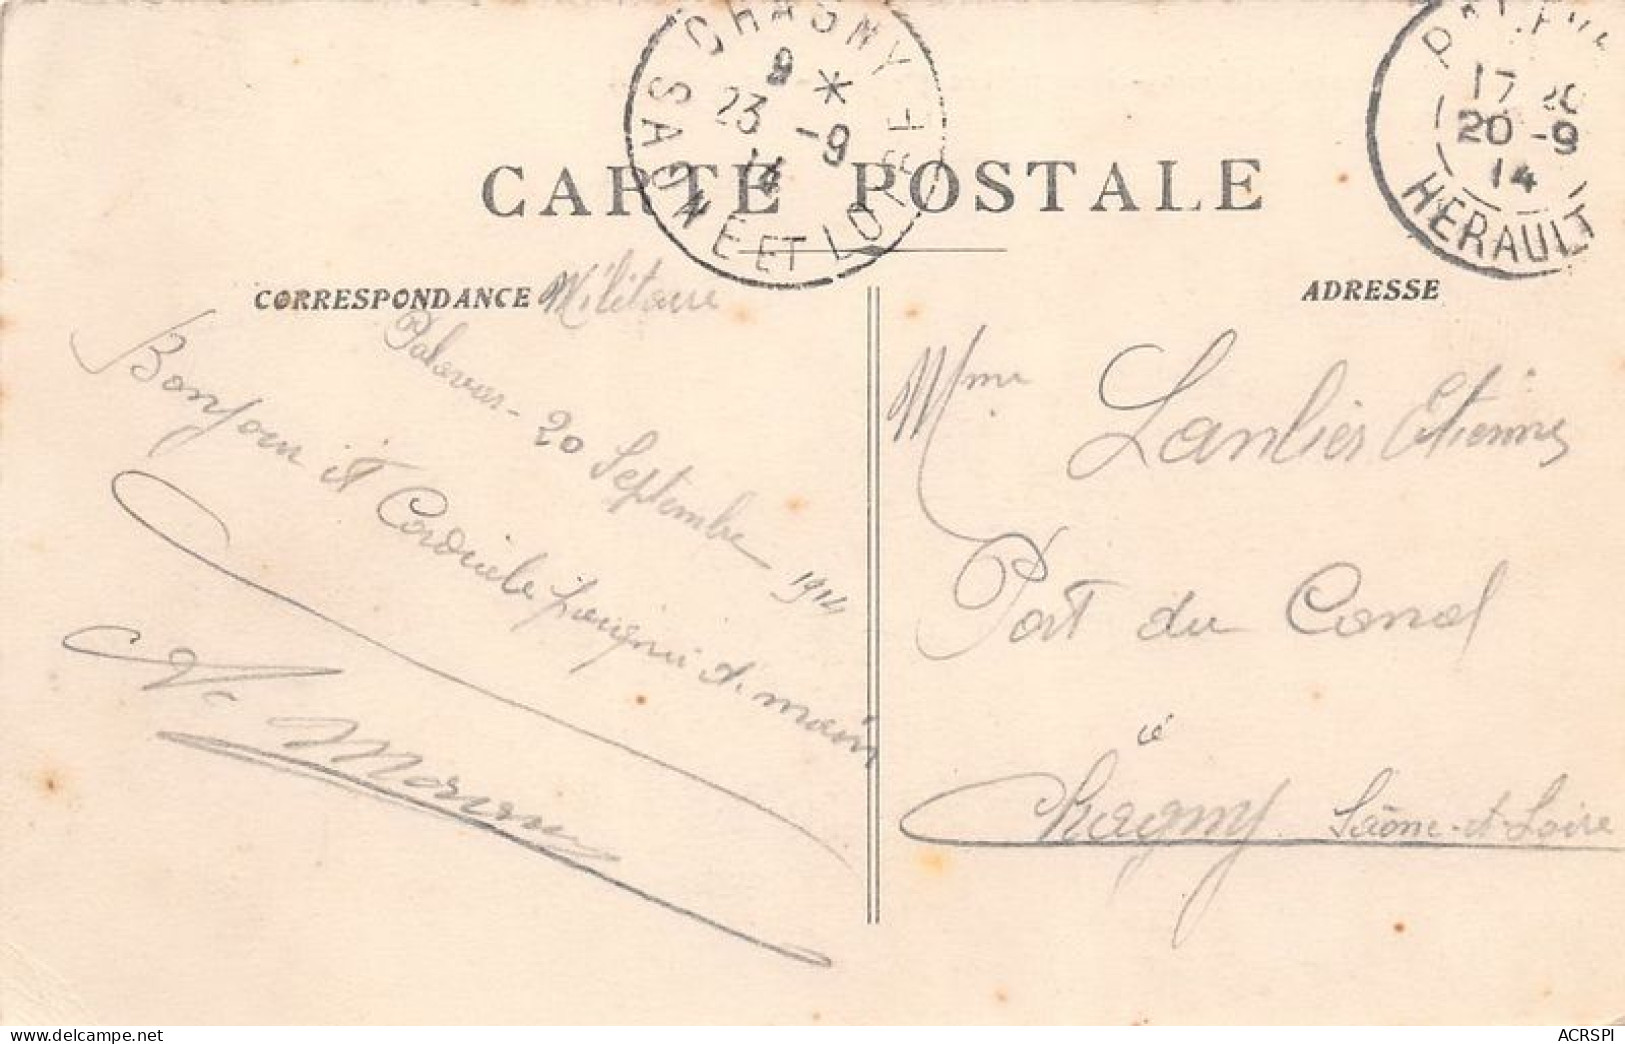 CHAGNY
9 *
23 -9
14
SAONE ET LOIRE
17 20
20 -9
14
HERAULT
CARTE POSTALE
CORRESPONDANCE Militaire
ADRESSE
Palavas - 20 Septembre 1914
Bonjour et Cordiale poignée d. main
Morin
Mme Lanlier Etienne
Port du Canal
à
Chagny Saône-et-Loire
delcampe.net
ACRSPI